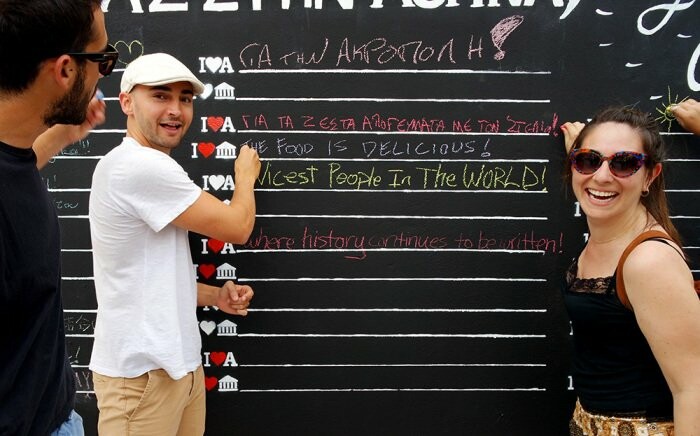 ΣΤΗΝ ΑΘΗΝΑ,
I ♥ A ΓΙΑ ΤΗΝ ΑΚΡΟΠΟΛΗ!
I ♥ A ΓΙΑ ΤΑ ΖΕΣΤΑ ΑΠΟΓΕΥΜΑΤΑ ΜΕ ΤΟΝ
THE FOOD IS DELICIOUS!
I ♥ A NICEST PEOPLE IN THE WORLD!
I ♥ A where history continues to be written!
I ♥ A